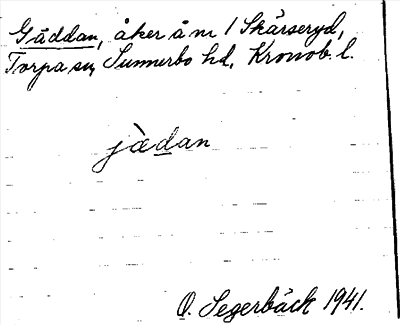 Gäddan, åker å nr 1 Skärseryd,
Torpa sn, Sunnerbo hd, Kronob. l.
jàdan
O. Segerbäck 1941.